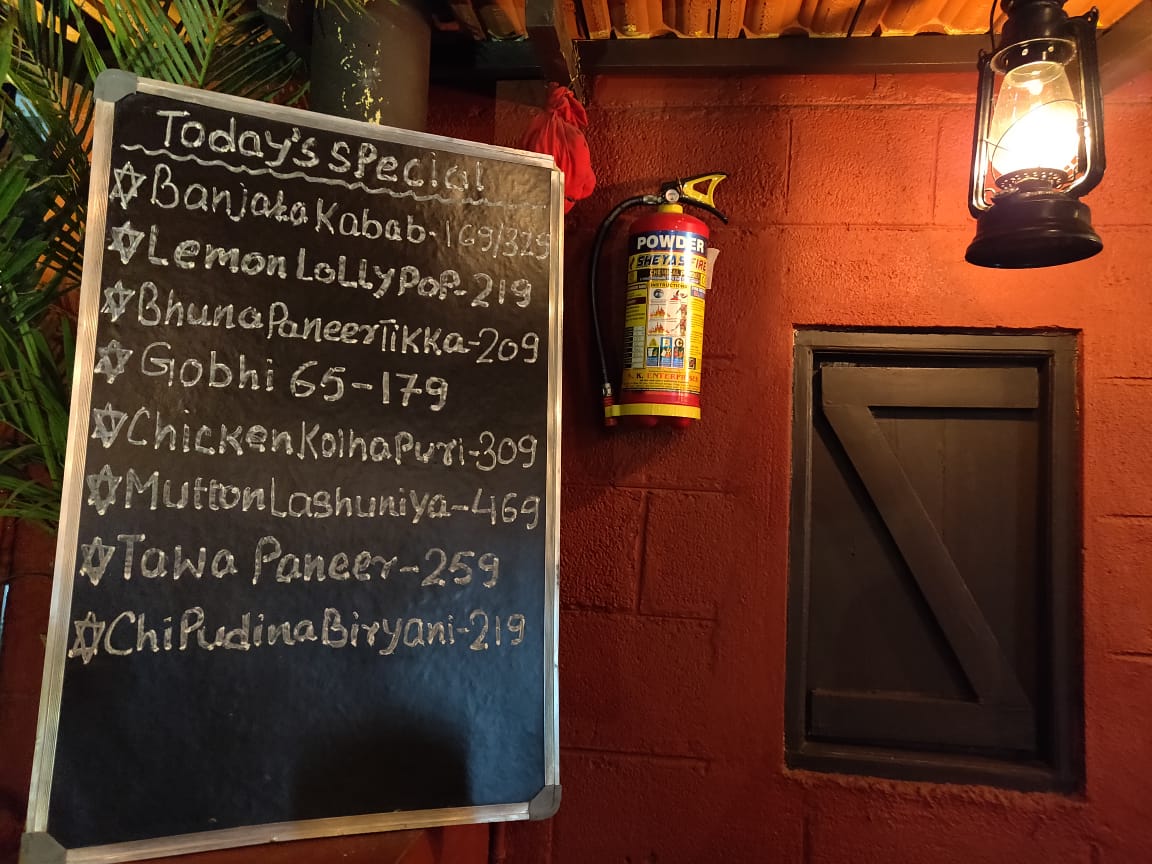 Today's Special
Banjara Kabab - 169/325
Lemon LollyPoP - 219
Bhuna Paneer Tikka - 209
Gobhi 65 - 179
Chicken KolhaPuri - 309
Mutton Lashuniya - 469
Tawa Paneer - 259
Chi Pudina Biryani - 219
POWDER
SHEYAS FIRE
INSTRUCTIONS